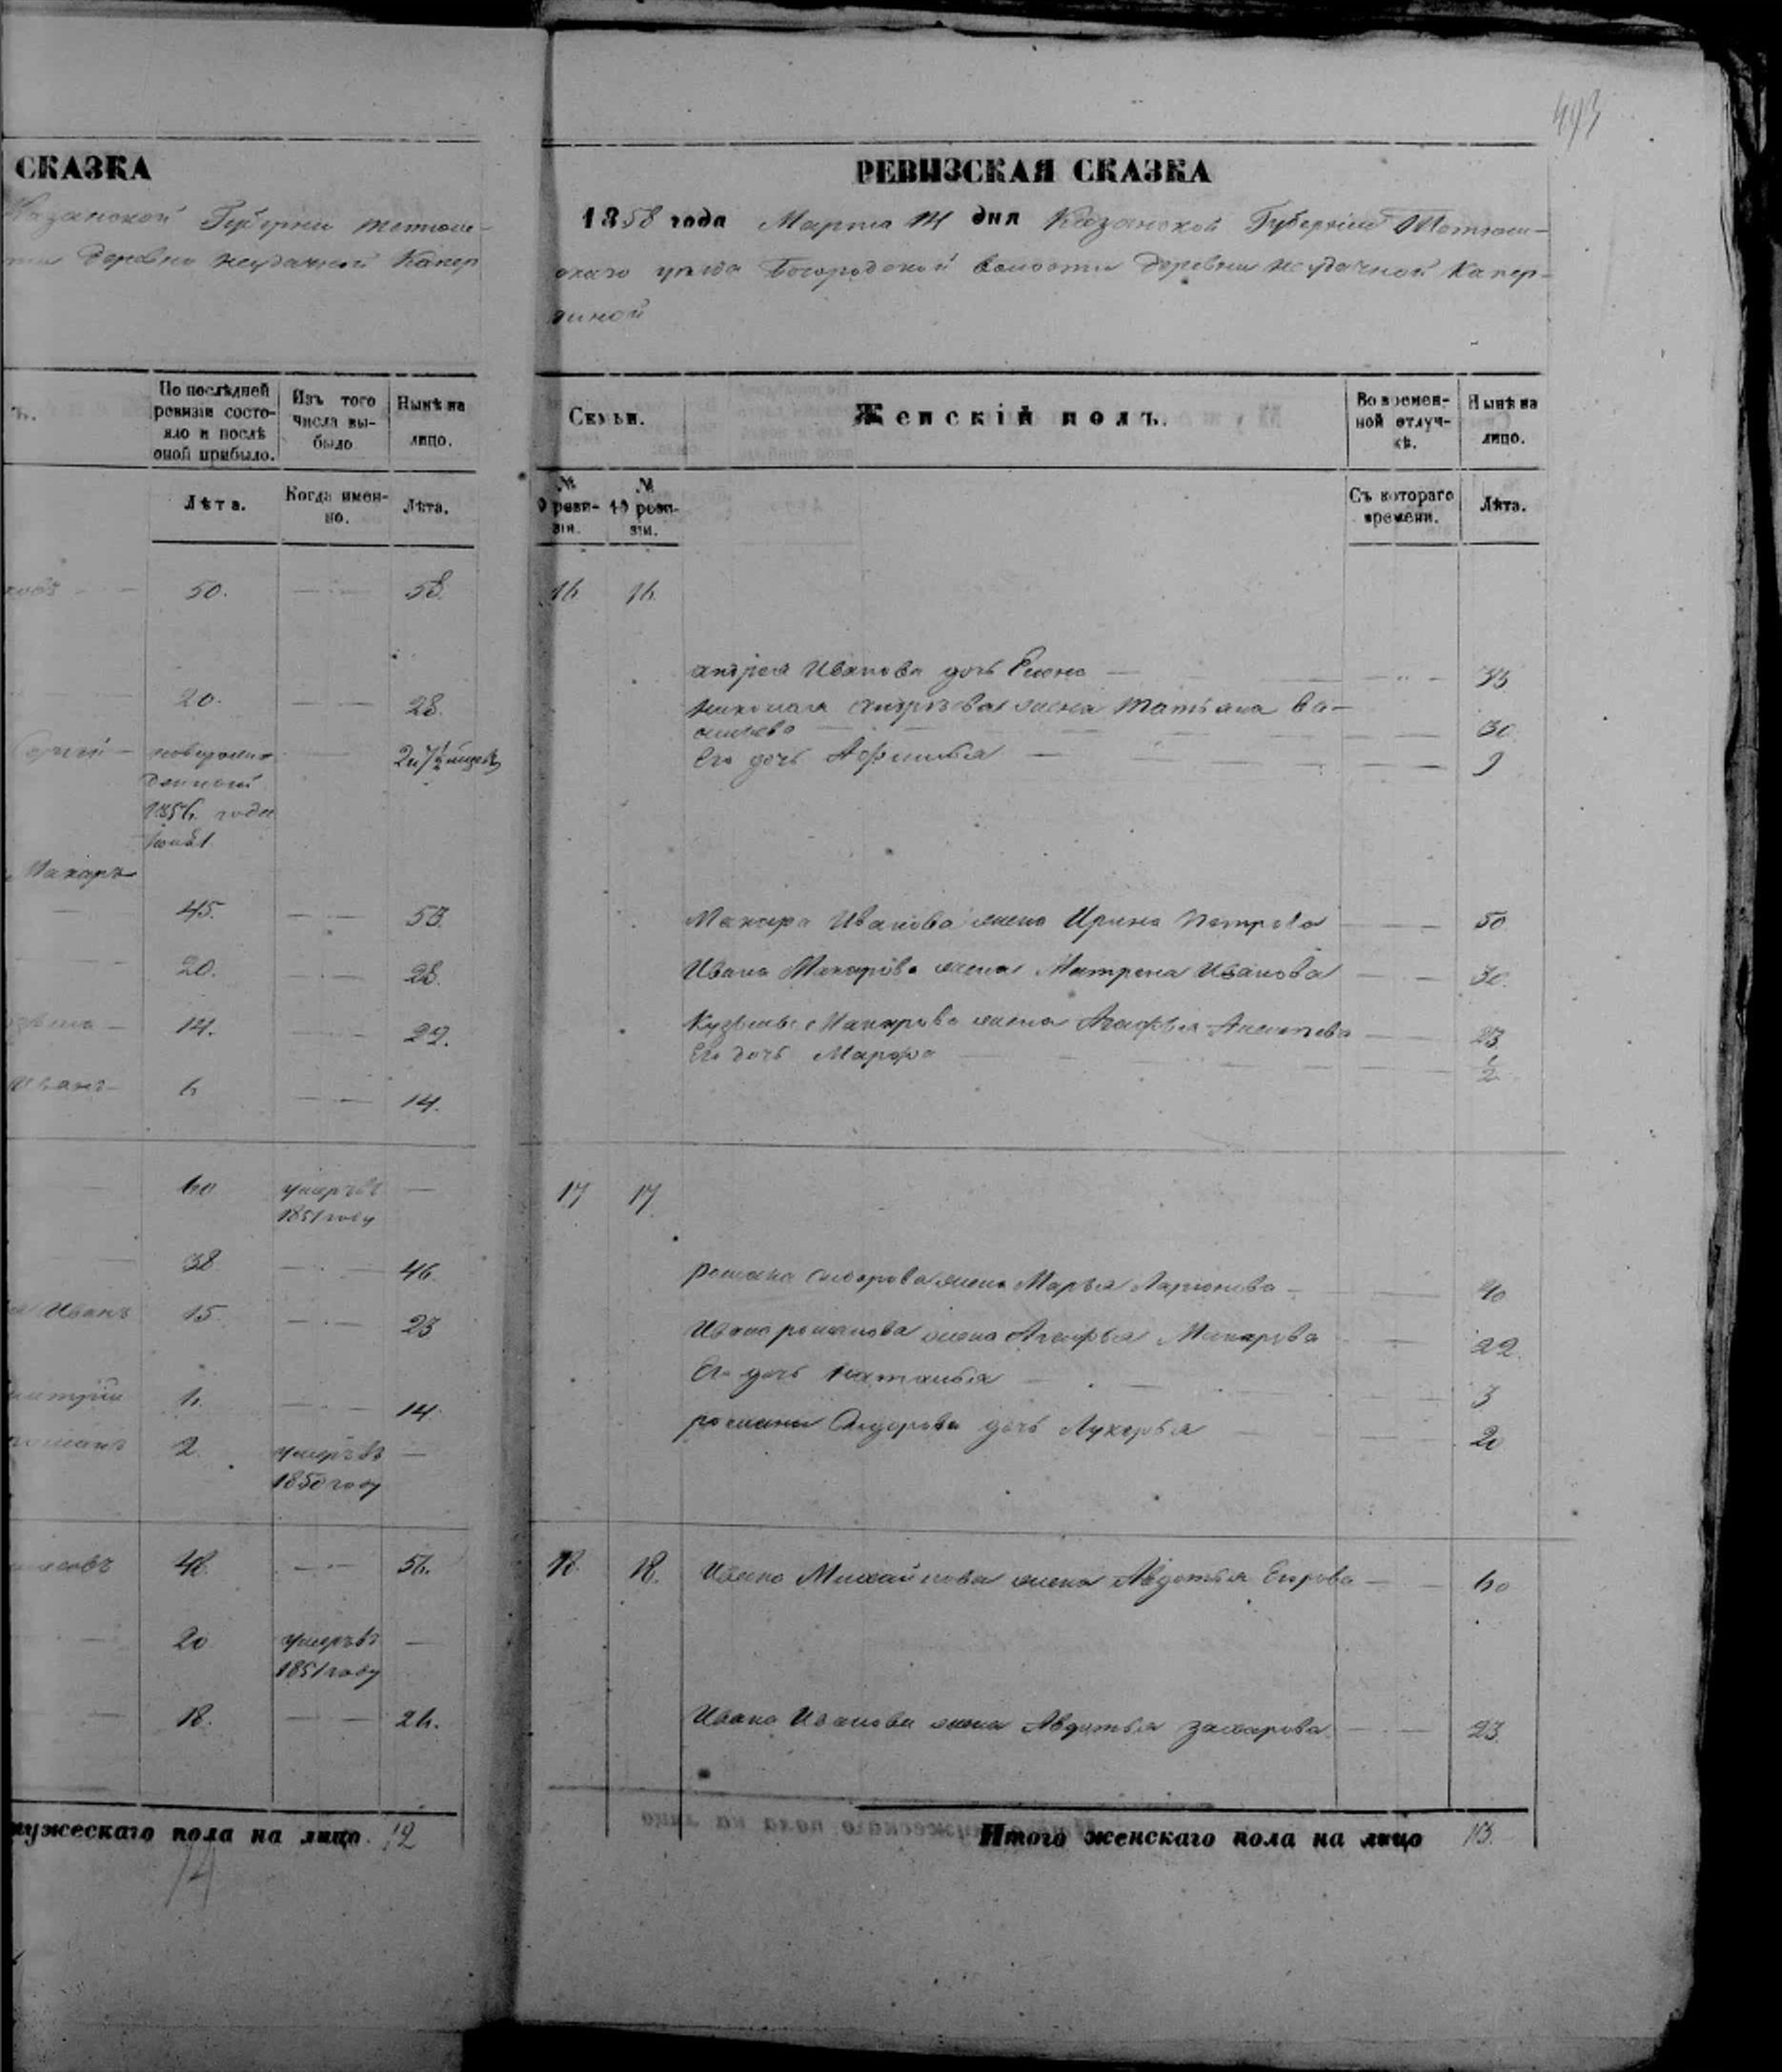 493
СКАЗКА
Казанской Губернии тетюш-
деревни неудачной Капер
По послѣдней ревизіи состо-
яло и послѣ
оной прибыло.
Изъ того
числа вы-
было
Нынѣ на
лицо.
Лѣта.
Когда имен-
но.
Лѣта.
50. 58.
20. 28.
новорожденный
1856 года
45. 53.
Макаръ
20. 28.
14. 22.
Иванъ 6 14.
60 умеръ въ
1851 году
38 46.
Иванъ 15 23
6. 14.
2. умеръ въ
1850 году
48. 56.
20 умеръ въ
1851 году
18. 26.
мужескаго пола на лицо. 12
14
РЕВИЗСКАЯ СКАЗКА
1858 года Марта 14 дня Казанской Губерніи Тетюш-
скаго уѣзда Богородской волости деревни неудачной Капер-
линой
Семьи.
Женскій полъ.
Во времен-
ной отлуч-
кѣ.
Нынѣ на
лицо.
№
9 реви-
зіи.
№
10 реви-
зіи.
Съ котораго
времени.
Лѣта.
16. 16.
андрея Иванова дочь Елена
николая андреева жена Татьяна Ва-
сильева 30
Его дочь Афимья 9
Макара Иванова жена Ирина Петрова 50
Ивана Макарова жена Матрена Иванова 30.
Кузьмы Макарова жена Агафья 23
Его дочь Марфа
17 17.
романа сидорова жена Марья Ларионова 40
Ивана романова жена Агафья Макарова 22.
Его дочь Наталья 3
романа Сидорова дочь Лукерья 20
18. 18. Ивана Михайлова жена Авдотья Егорова 60
Ивана Иванова жена Авдотья захарова 23.
Итого женскаго пола на лицо 13.